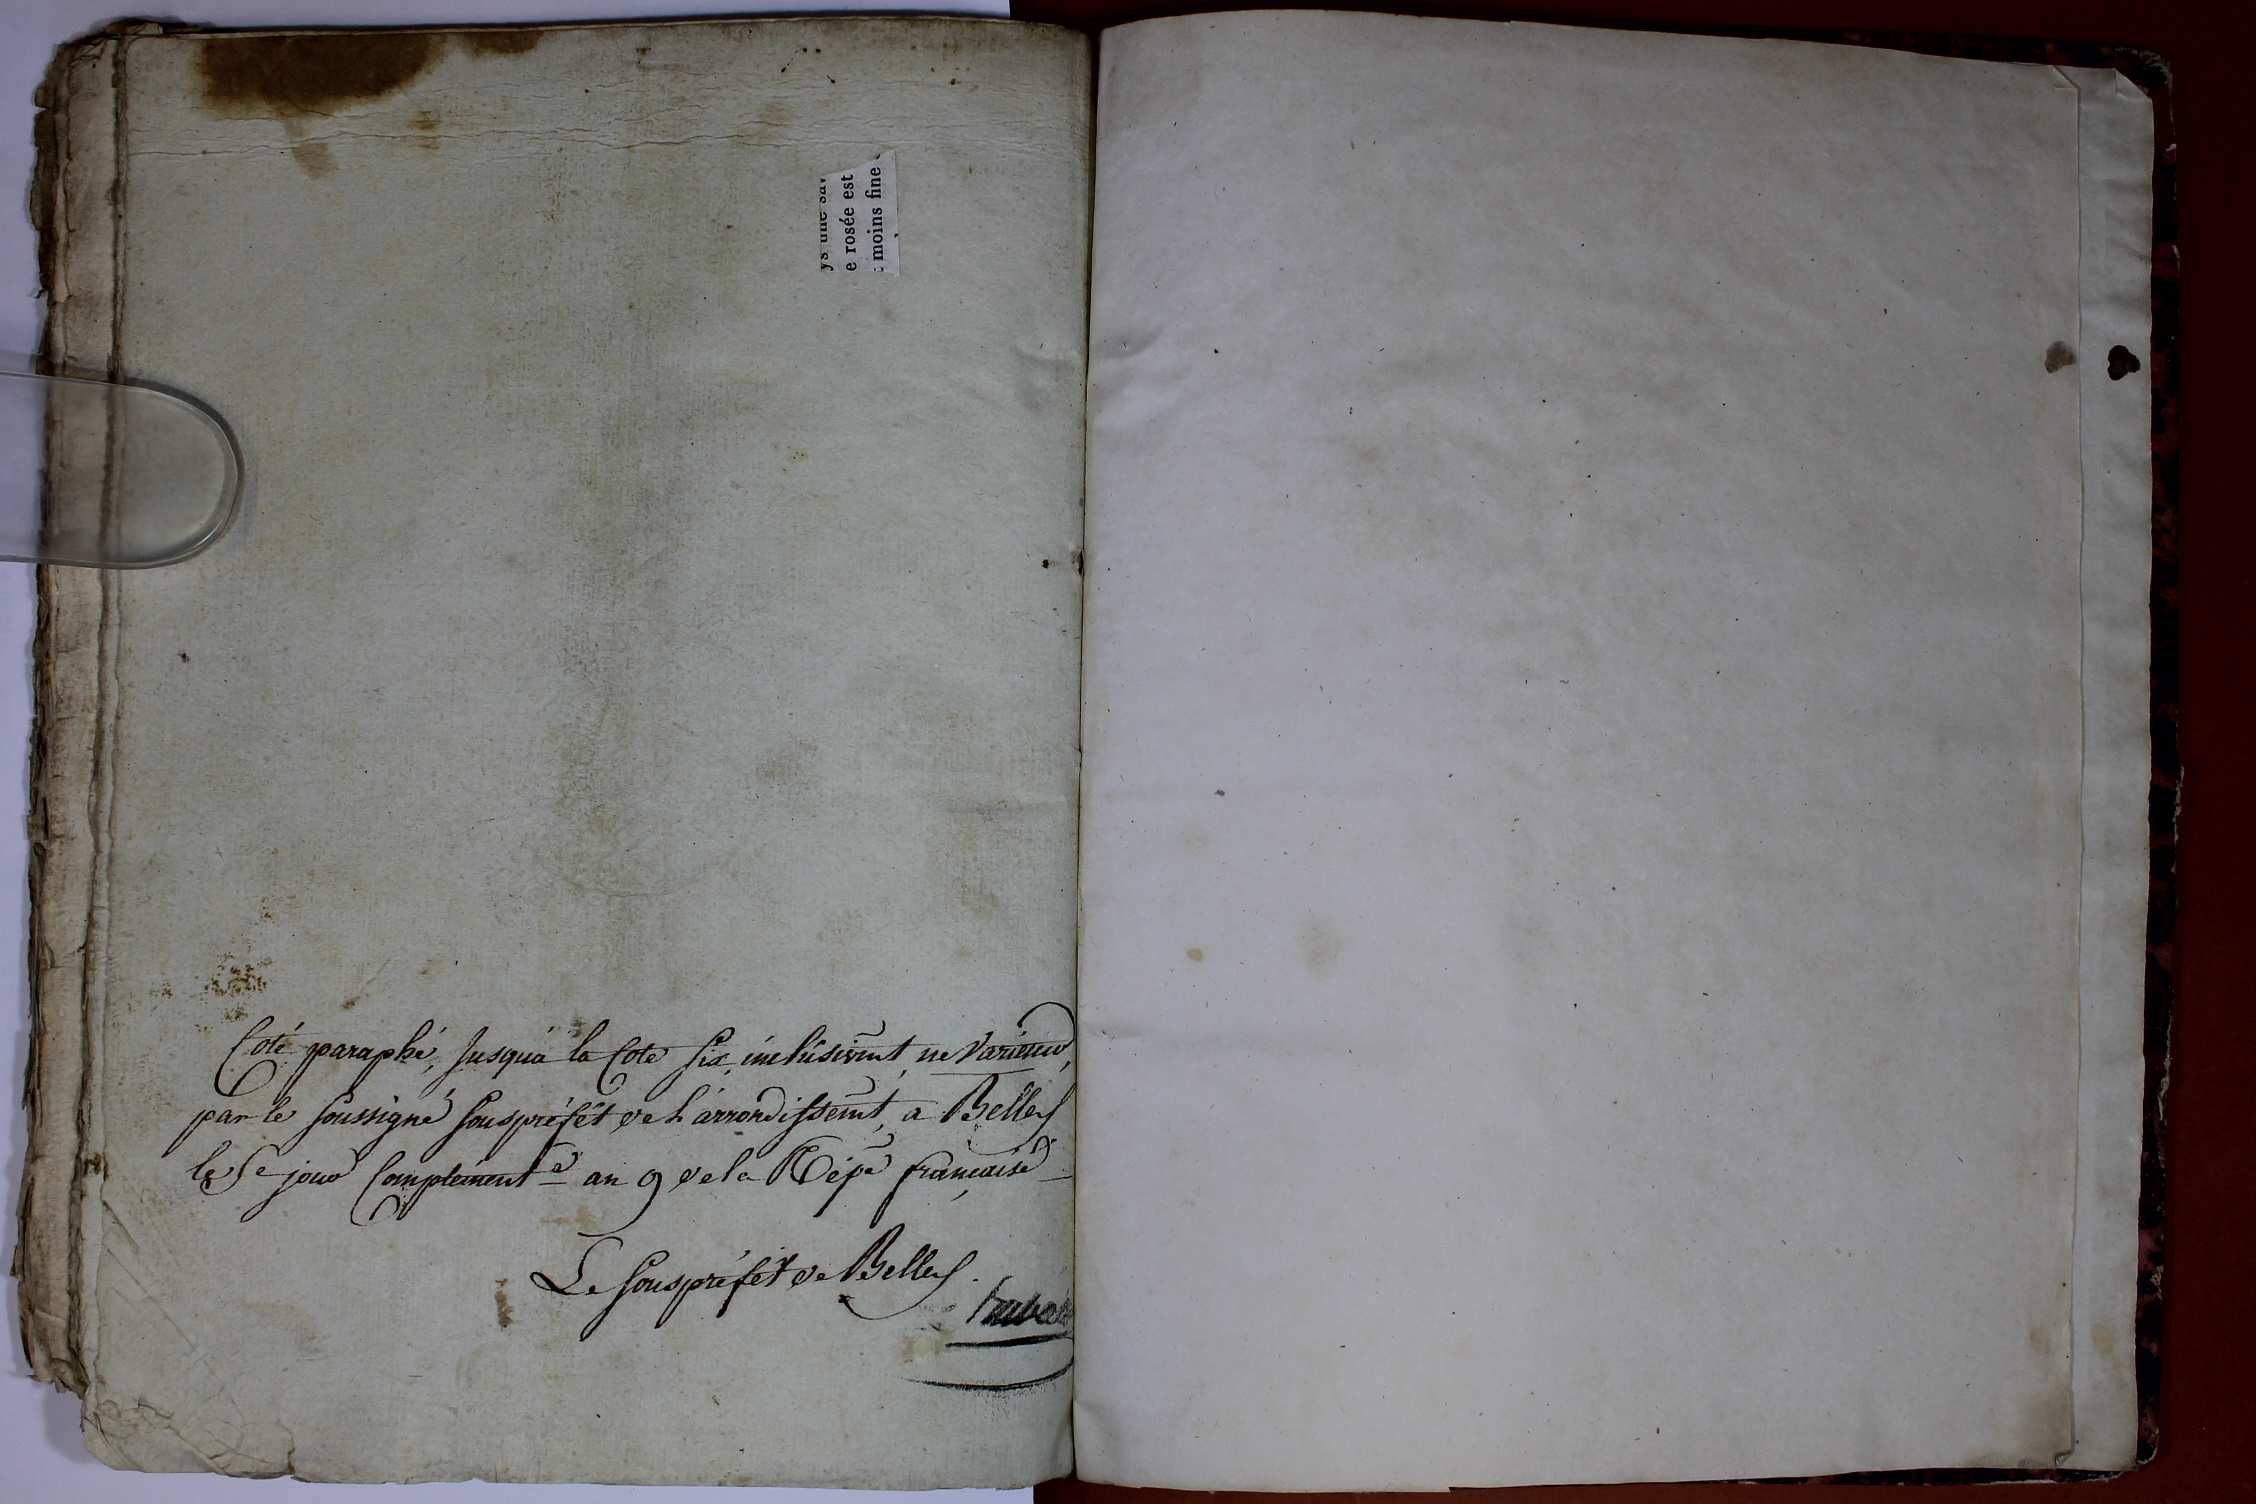 e rosée est
moins fine
Coté paraphé, Jusqu'à la Cote six, inclusivmt, ne varietur,
par le soussigné souspréfét de L'arrondissemt, a Belley
le 5e jour Complément.e an 9 de la Répe française
Le souspréfét de Belley.